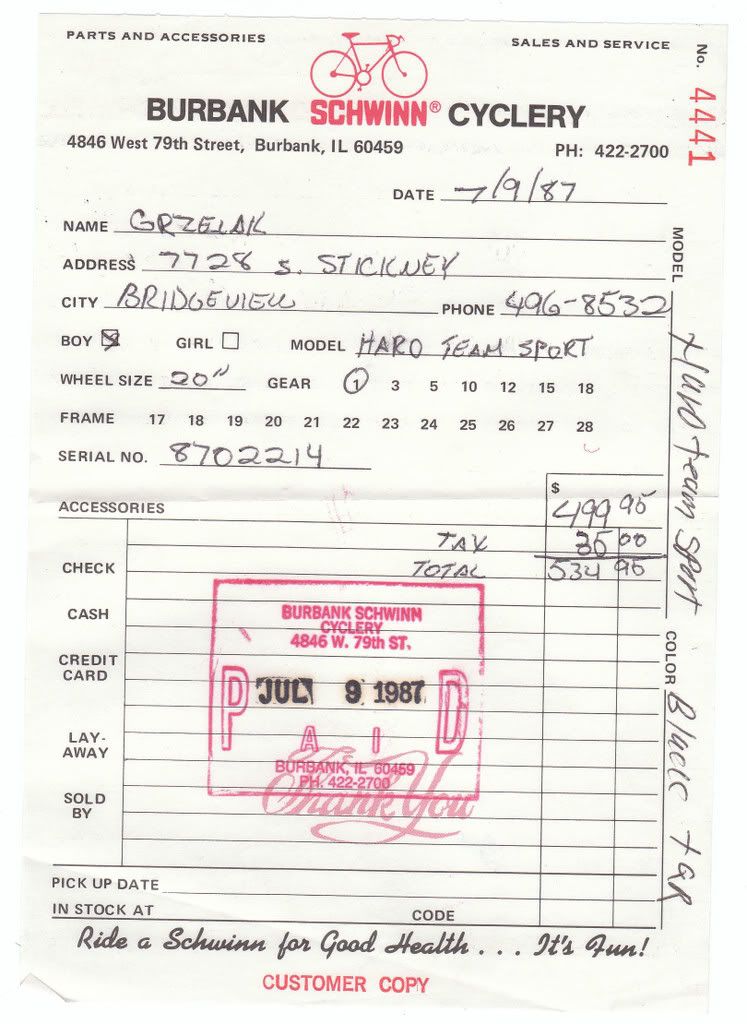 PARTS AND ACCESSORIES
SALES AND SERVICE
No. 4441
BURBANK SCHWINN® CYCLERY
4846 West 79th Street, Burbank, IL 60459
PH: 422-2700
DATE 7/9/87
NAME GRZELAK
ADDRESS 7728 S. STICKNEY
CITY BRIDGEVIEW PHONE 496-8532
BOY GIRL MODEL HARO TEAM SPORT
WHEEL SIZE 20" GEAR 1 3 5 10 12 15 18
FRAME 17 18 19 20 21 22 23 24 25 26 27 28
SERIAL NO. 8702214
MODEL Haro Team Sport
COLOR Black
ACCESSORIES $ 499 95
TAX 35 00
CHECK TOTAL 534 95
CASH
CREDIT CARD
LAY-AWAY
SOLD BY
BURBANK SCHWINN
CYCLERY
4846 W. 79th ST.
PAID
JUL 9 1987
BURBANK, IL 60459
PH. 422-2700
Thank You
PICK UP DATE
IN STOCK AT CODE
Ride a Schwinn for Good Health . . . It's Fun!
CUSTOMER COPY